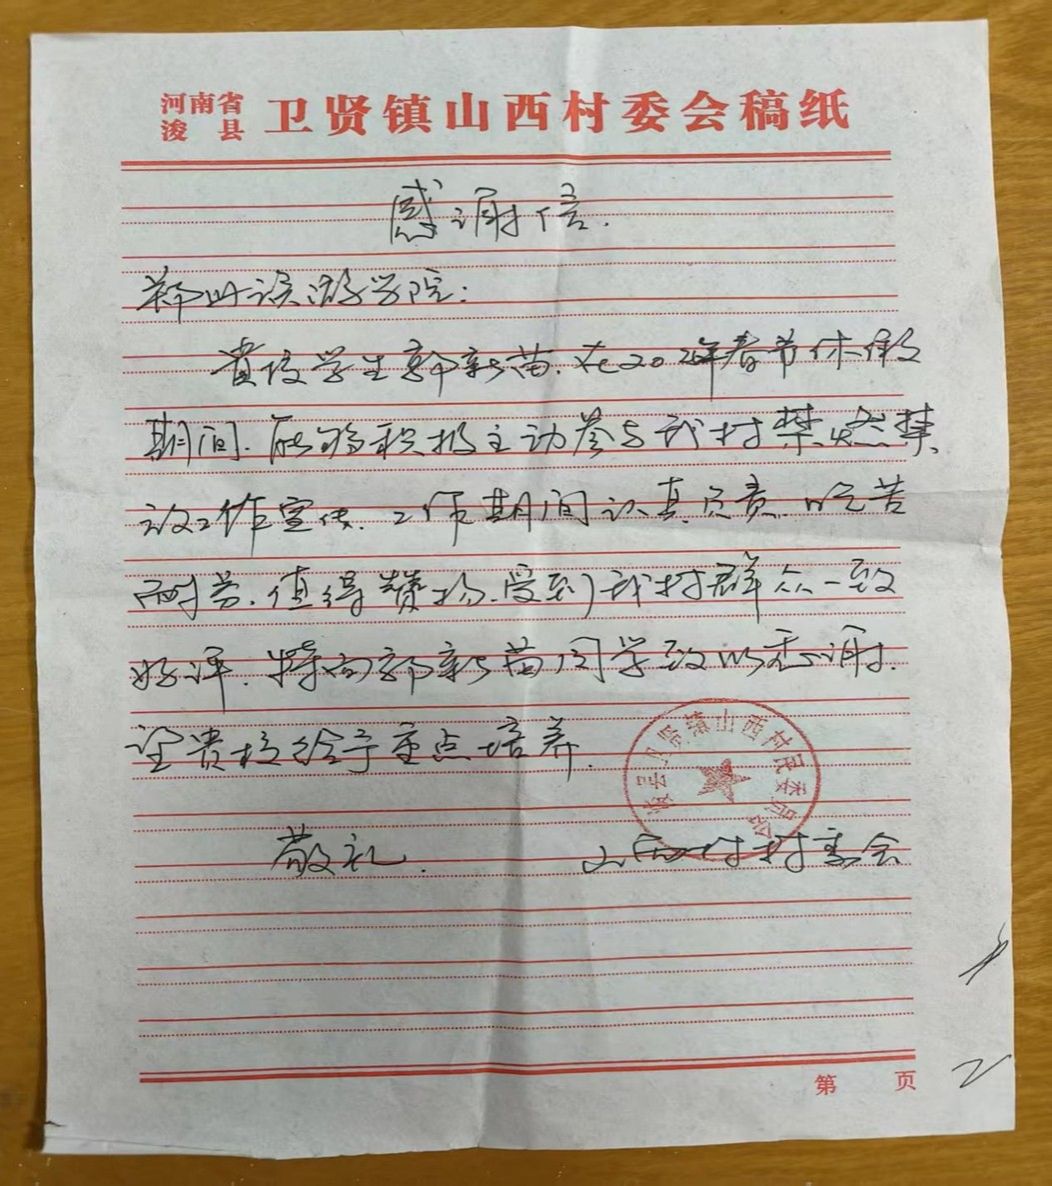 河南省
浚县
卫贤镇山西村委会稿纸
感谢信.
郑州旅游学院:
贵校学生郭新苗.在20 年春节休假
期间.能够积极主动参与我村禁燃禁
放工作宣传.工作期间认真负责.吃苦
耐劳.值得赞扬.受到我村群众一致
好评.特向郭新苗同学致以感谢.
望贵校给予重点培养.
浚县卫贤镇山西村民委员会
敬礼.
山西村村委会
第 页